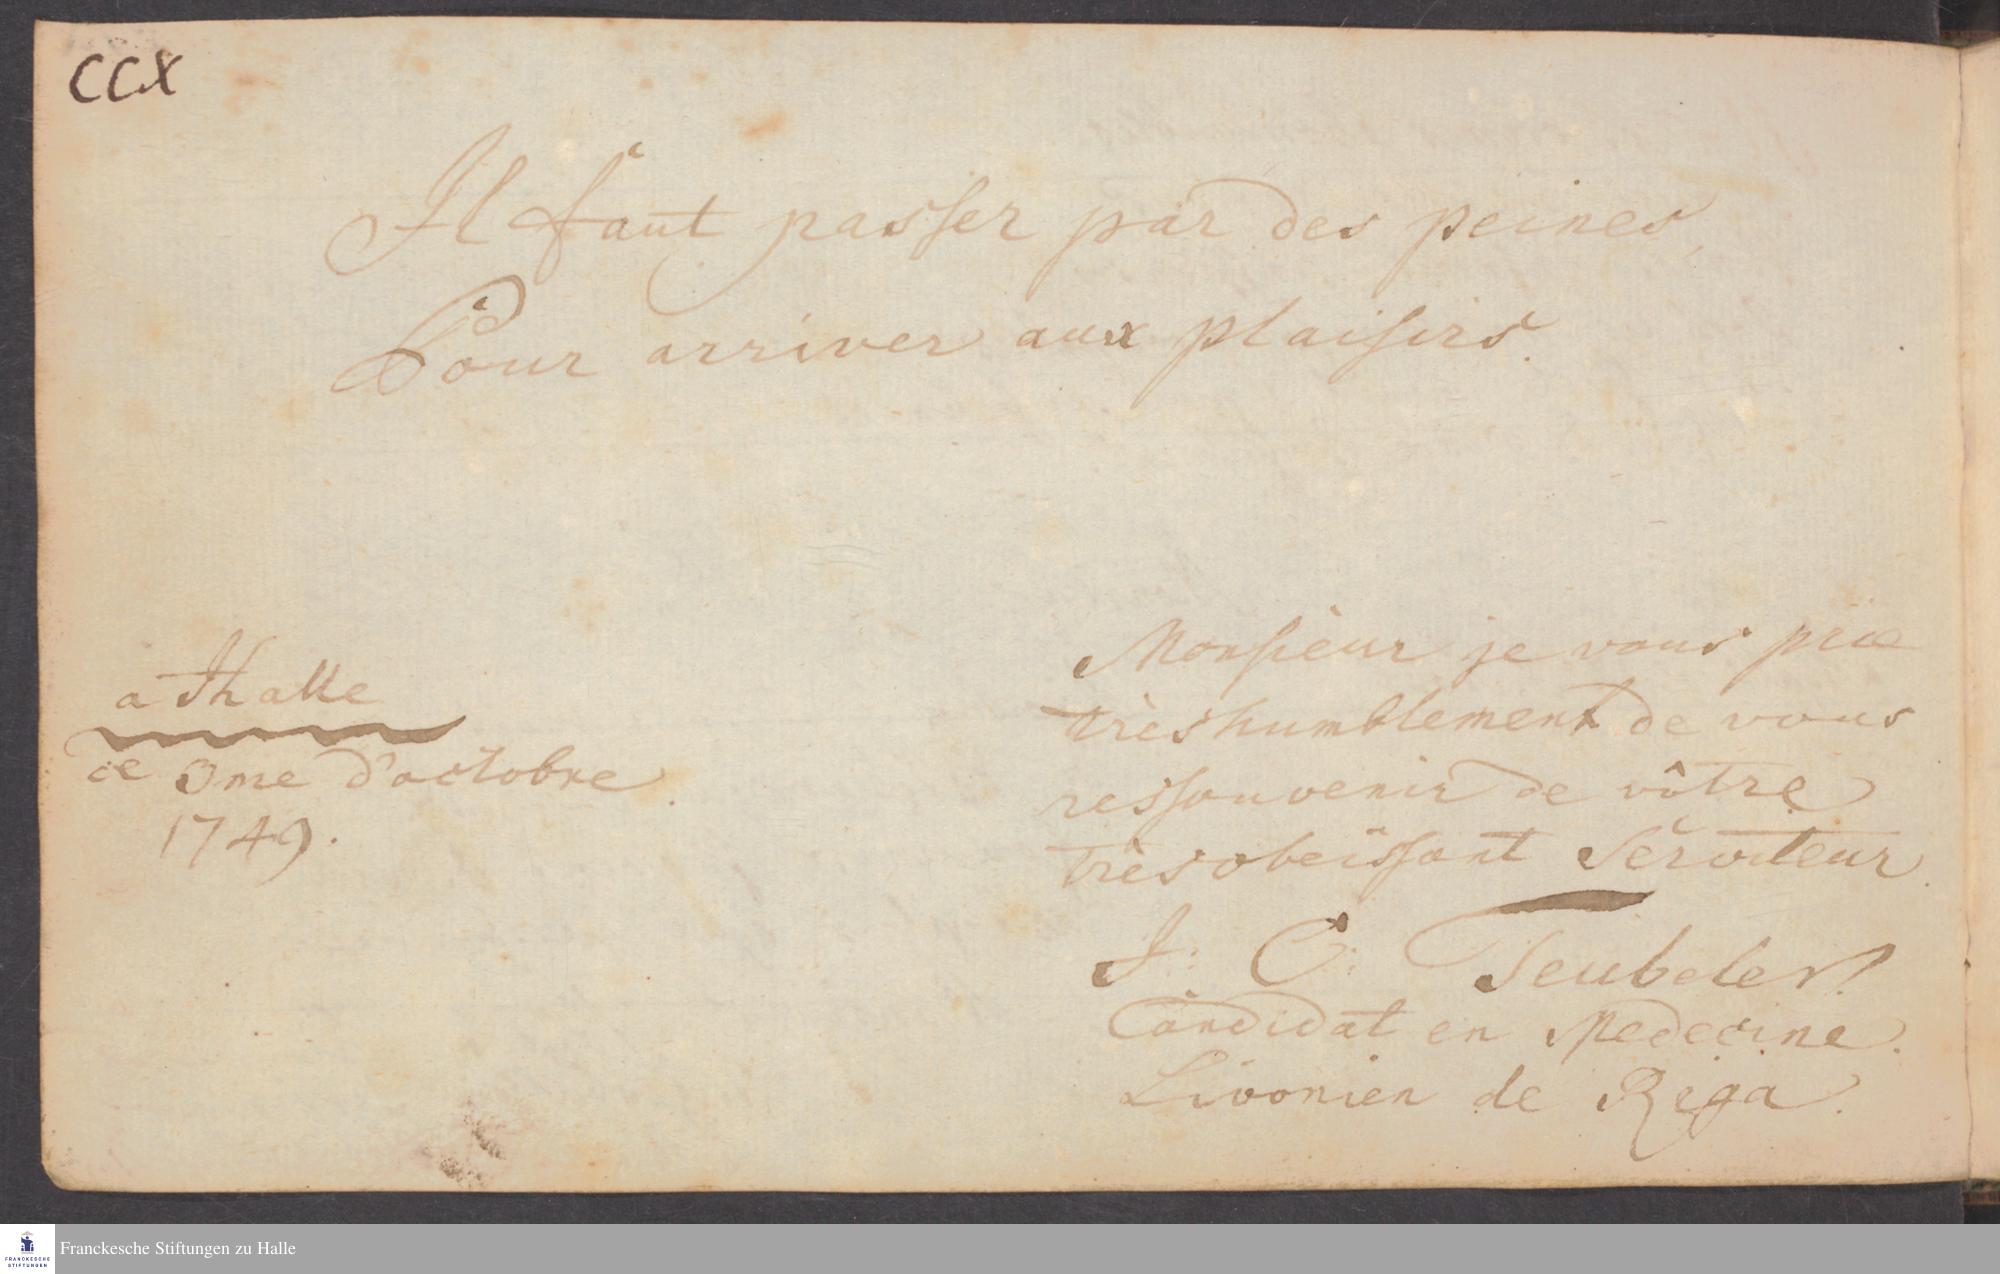 CCX
Il faut passer par des peines,
Pour arriver aux plaisirs.
a Halle
ce 3me d'octobre.
1749.
Monsieur je vous prie
très humblement de vous
ressouvenir de vôtre
très obeïssant Serviteur.
J: C: Teubeler.
Candidat en Medecine.
Livonien de Riga.
FRANCKESCHE
STIFTUNGEN
Franckesche Stiftungen zu Halle